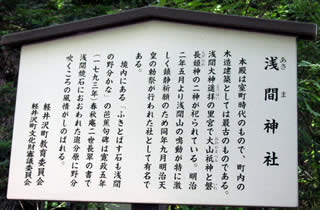 あさま
浅間神社
本殿は室町時代のもので、町内の
木造建築としては最古のものである。
浅間大神遥拝の里宮で大山祇神と磐
長姫神の二神が祀られている。明治
二年五月より浅間山の鳴動が特に激
しく鎮静祈願のため同年九月明治天
皇の勅祭が行われた社として有名で
ある。
境内にある、ふきとばす石も浅間
の野分かな」の芭蕉句碑は寛政五年
(一七九三年)春秋庵二世長翠の書で
浅間焼石におおわれた追分原に野分
吹くころの風情がしのばれる。
軽井沢町教育委員会
軽井沢町文化財審議委員会